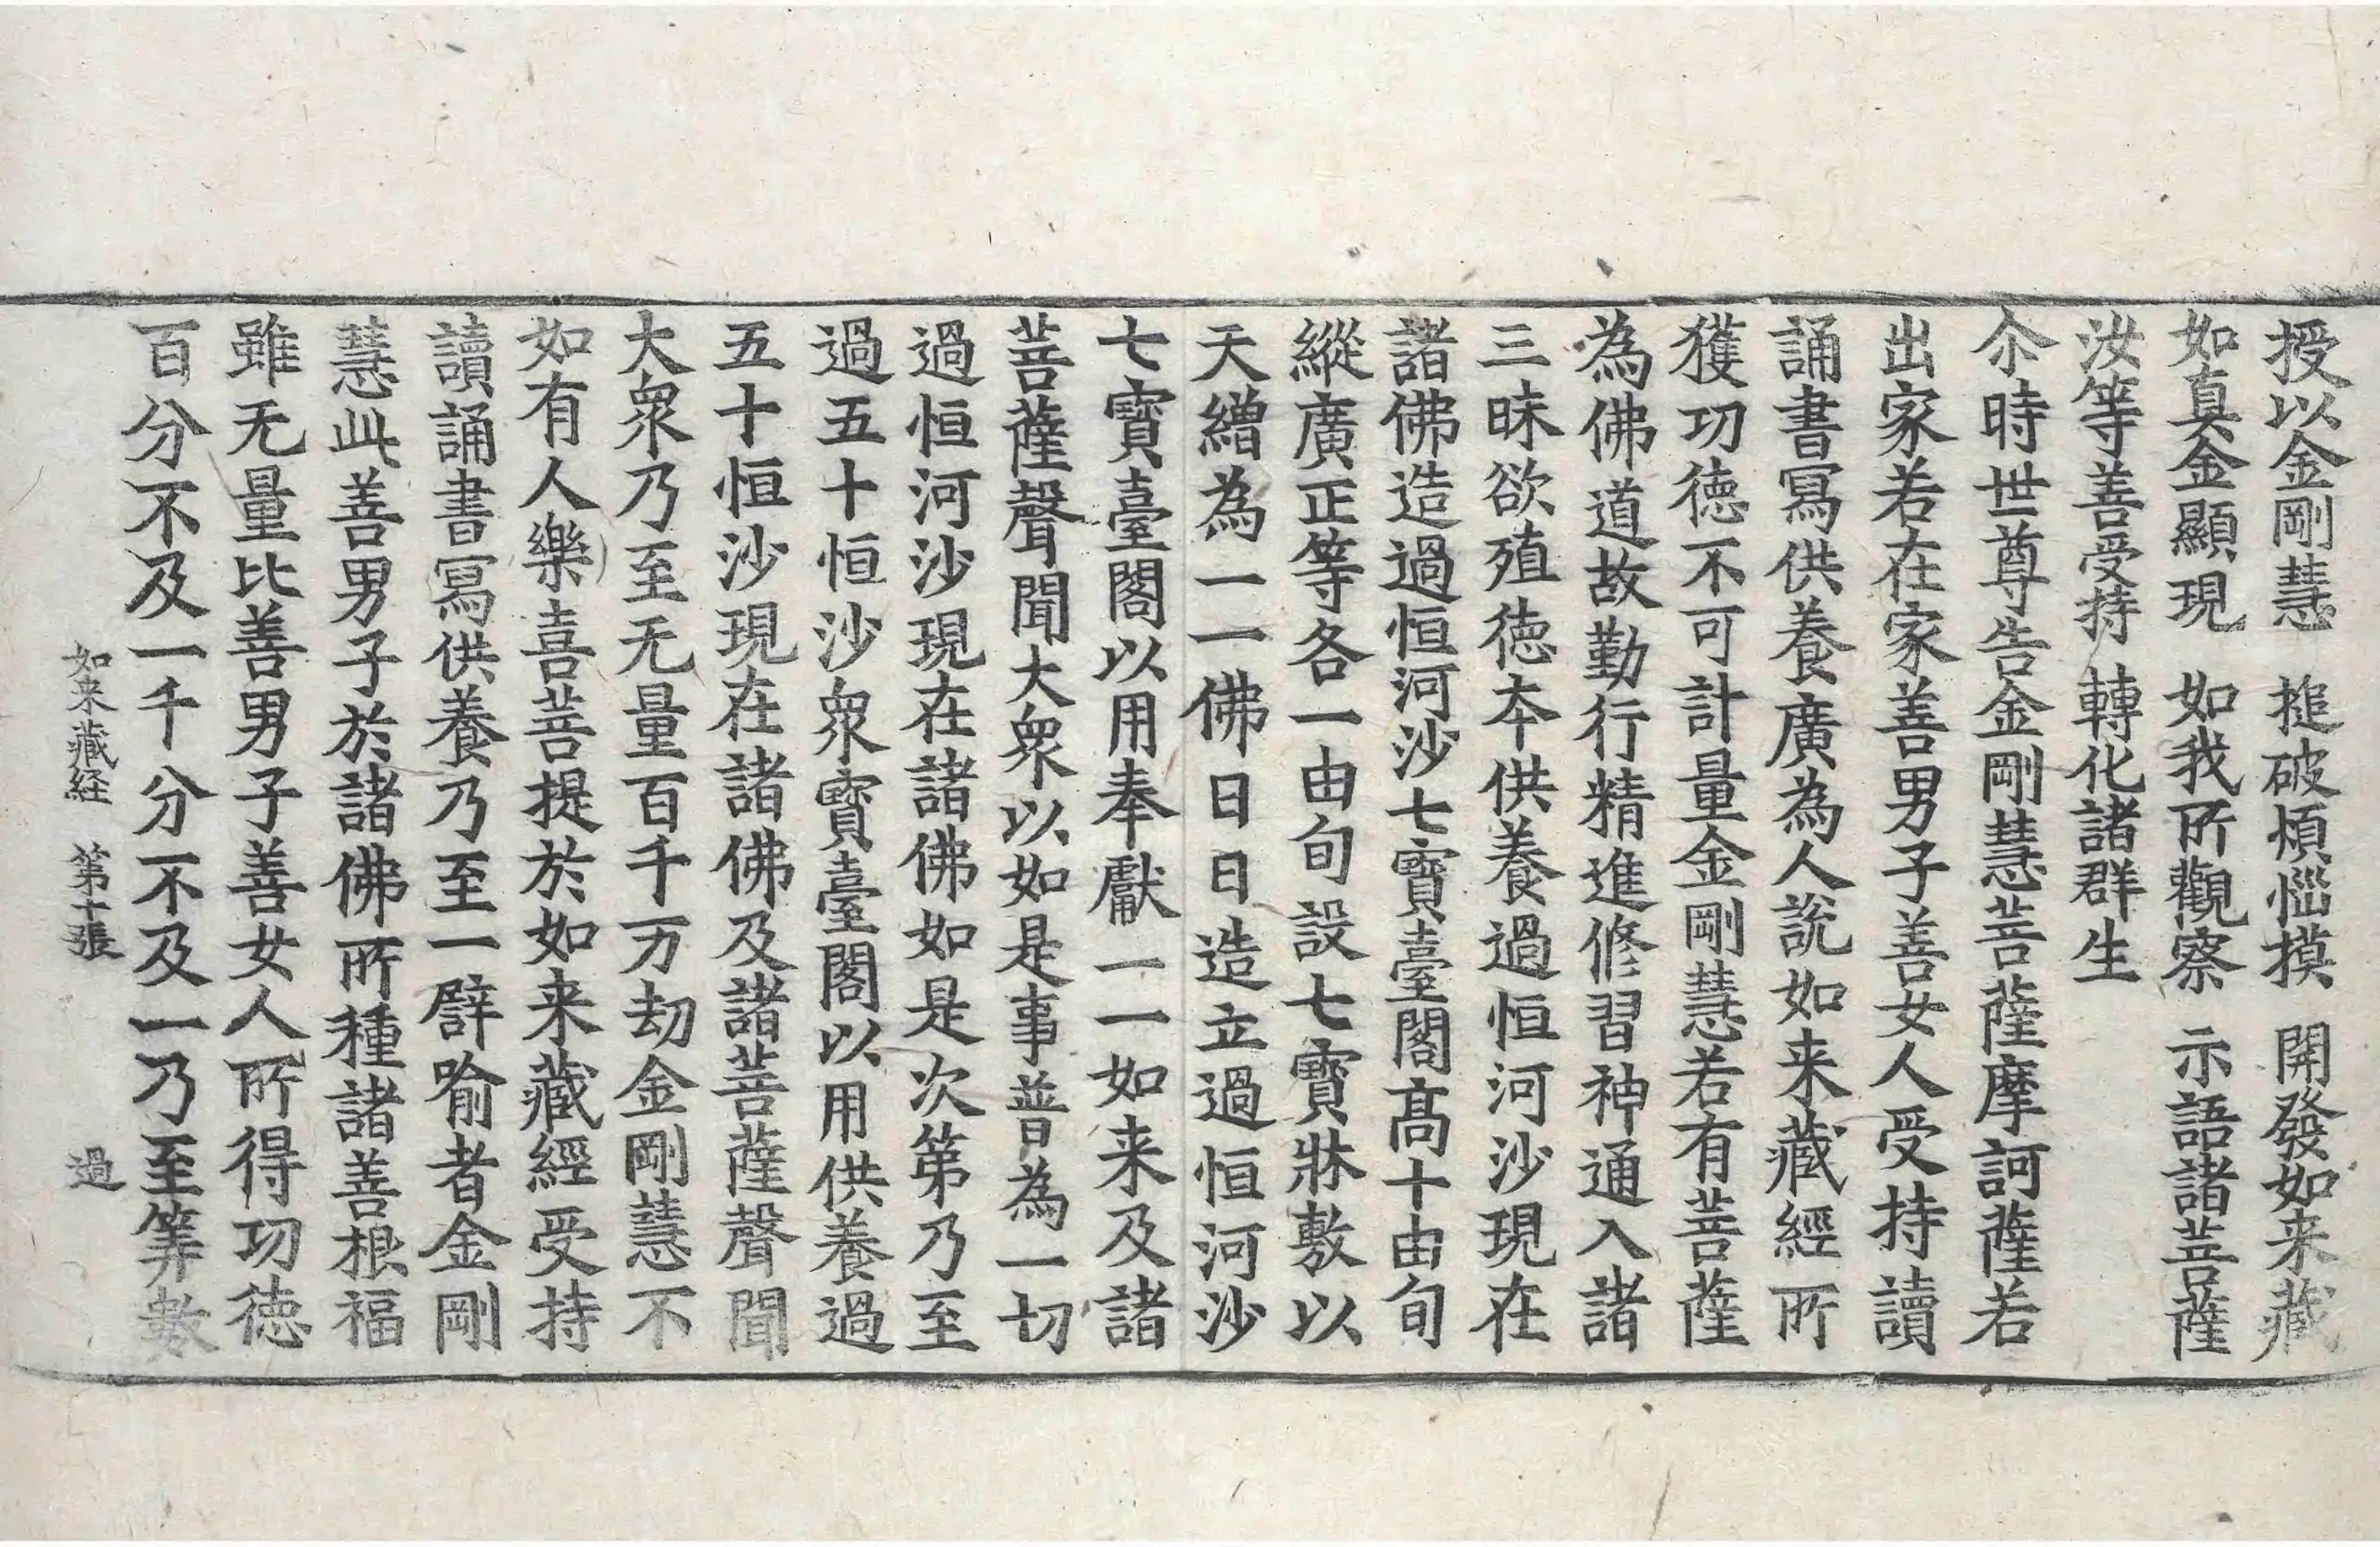 授以金剛慧　搥破煩惱摸　開發如来藏
如真金顯現　如我所觀察　示語諸菩薩
汝等善受持　轉化諸群生
尒時世尊告金剛慧菩薩摩訶薩若
出家若在家善男子善女人受持讀
誦書寫供養廣為人說如来藏經所
獲功德不可計量金剛慧若有菩薩
為佛道故勤行精進修習神通入諸
三昧欲殖德夲供養過恒河沙現在
諸佛造過恒河沙七寶臺閣髙十由旬
縱廣正等各一由旬設七寶牀敷以
天繒為一一佛日日造立過恒河沙
七寶臺閣以用奉獻一一如来及諸
菩薩聲聞大衆以如是事普為一切
過恒河沙現在諸佛如是次第乃至
過五十恒沙衆寶臺閣以用供養過
五十恒沙現在諸佛及諸菩薩聲聞
大衆乃至无量百千万劫金剛慧不
如有人樂喜菩提於如来藏經受持
讀誦書寫供養乃至一譬喻者金剛
慧此善男子於諸佛所種諸善根福
雖无量比善男子善女人所得功德
百分不及一千分不及一乃至筭數
如来藏経　第十張　過